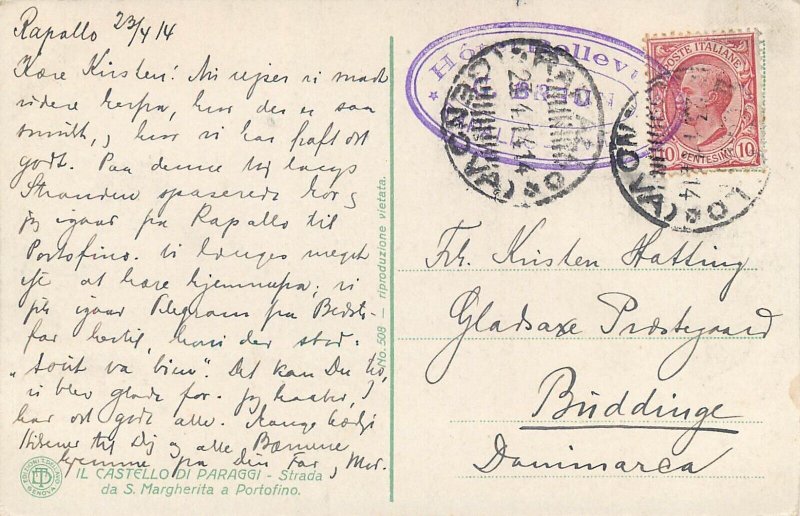 Rapallo 23/4 14
Kære Kirsten! Nu rejser vi snart
videre herfra, hvor der er saa
smukt, og hvor vi har haft det
godt. Paa denne Vej langs
Stranden spaserede Mor og
jeg igaar fra Rapallo til
Portofino. Vi længes meget
efter at høre hjemmefra; vi
fik igaar Telegram fra Bedste-
far hertil, hvori der stod:
"tout va bien". Det kan Du tro,
vi blev glade for. Jeg haaber, I
har det godt alle. Mange kærlige
Hilsener til Dig og alle Børnene
hjemme fra Din Far, Mor.
IL CASTELLO DI PARAGGI - Strada
da S. Margherita a Portofino.
No. 508 — riproduzione vietata.
GENOVA
Hôtel Bellevue
RAPALLO (GENOVA)
23.4.14
POSTE ITALIANE
10 CENTESIMI 10
Frk. Kirsten Hatting
Gladsaxe Præstegaard
Buddinge
Danimarca